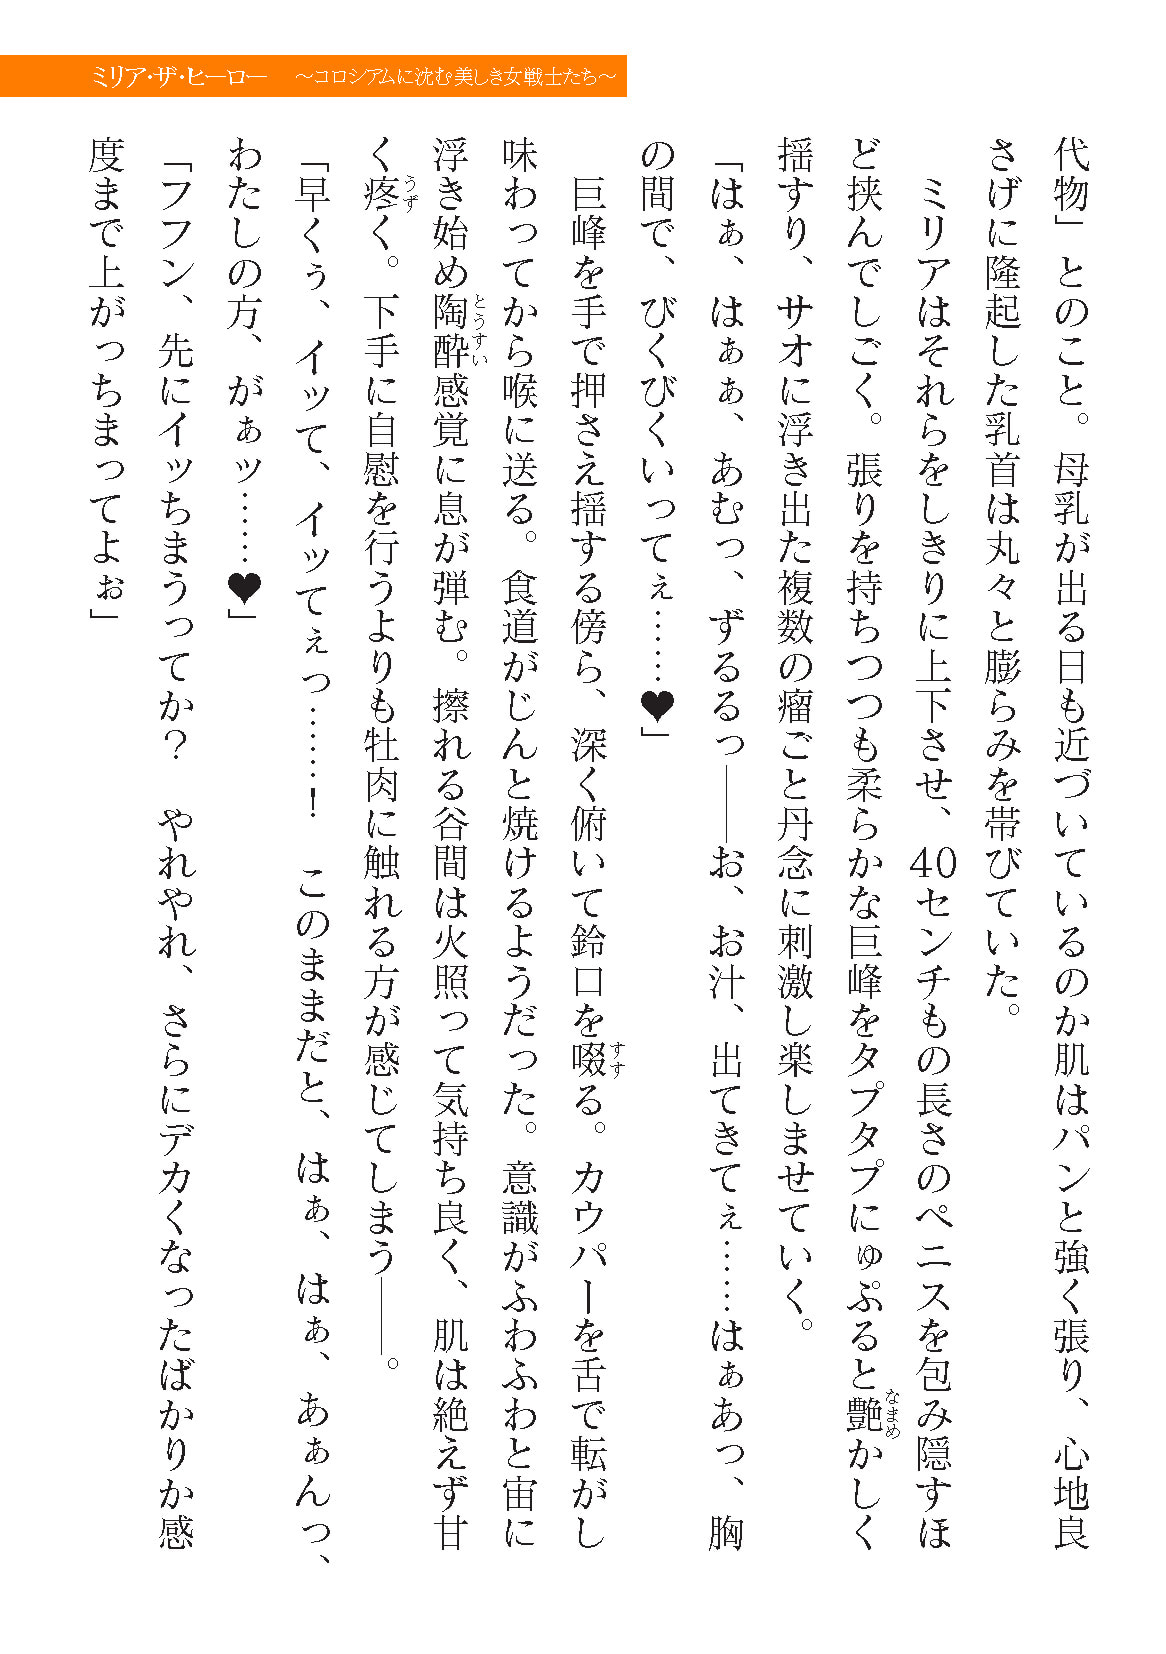 ミリア・ザ・ヒーロー　～コロシアムに沈む美しき女戦士たち～
代物」とのこと。母乳が出る日も近づいているのか肌はパンと強く張り、心地良
さげに隆起した乳首は丸々と膨らみを帯びていた。
　ミリアはそれらをしきりに上下させ、40センチもの長さのペニスを包み隠すほ
ど挟んでしごく。張りを持ちつつも柔らかな巨峰をタプタプにゅぷると艶かしく
揺すり、サオに浮き出た複数の瘤ごと丹念に刺激し楽しませていく。
「はぁ、はぁぁ、あむっ、ずるるっ――お、お汁、出てきてぇ……はぁあっ、胸
の間で、びくびくいってぇ……♥」
　巨峰を手で押さえ揺する傍ら、深く俯いて鈴口を啜る。カウパーを舌で転がし
味わってから喉に送る。食道がじんと焼けるようだった。意識がふわふわと宙に
浮き始め陶酔感覚に息が弾む。擦れる谷間は火照って気持ち良く、肌は絶えず甘
く疼く。下手に自慰を行うよりも牡肉に触れる方が感じてしまう――。
「早くぅ、イッて、イッてぇっ……！　このままだと、はぁ、はぁ、あぁんっ、
わたしの方、がぁッ……♥」
「フフン、先にイッちまうってか？　やれやれ、さらにデカくなったばかりか感
度まで上がっちまってよぉ」